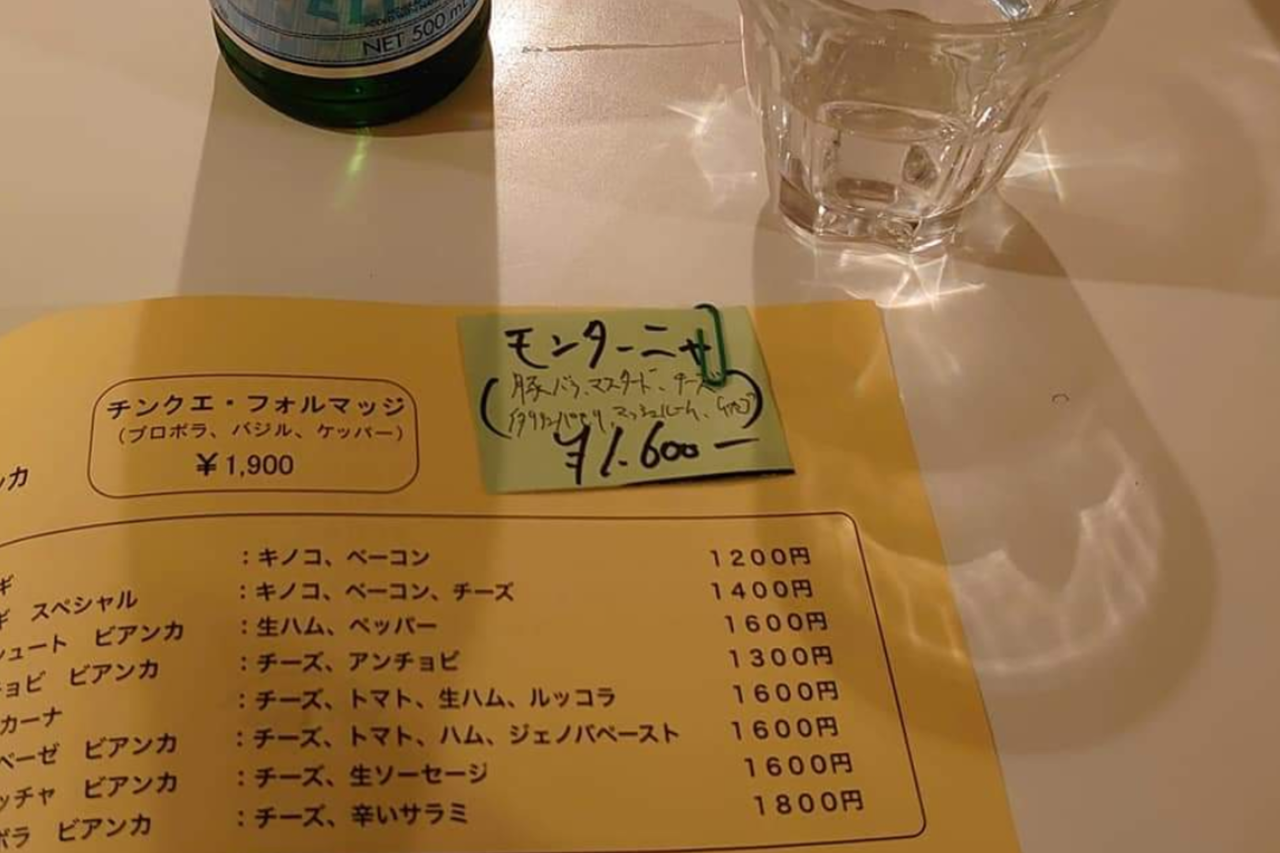 NET 500 mL
モンターニャ
(豚バラ、マスタード、チーズ
イタリアンパセリ、マッシュルーム、ケッパー)
¥1.600ー
チンクエ・フォルマッジ
(プロボラ、バジル、ケッパー)
¥1,900
ンカ
ギ :キノコ、ベーコン 1200円
ギ スペシャル :キノコ、ベーコン、チーズ 1400円
シュート ビアンカ :生ハム、ペッパー 1600円
チョビ ビアンカ :チーズ、アンチョビ 1300円
カーナ :チーズ、トマト、生ハム、ルッコラ 1600円
ベーゼ ビアンカ :チーズ、トマト、ハム、ジェノバペースト 1600円
ッチャ ビアンカ :チーズ、生ソーセージ 1600円
ボラ ビアンカ :チーズ、辛いサラミ 1800円